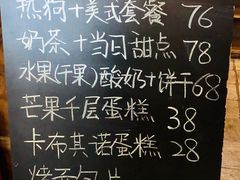 热狗+美式套餐 76
奶茶+当日甜点 78
水果(干果)酸奶+饼干68
芒果千层蛋糕 38
卡布其诺蛋糕 28